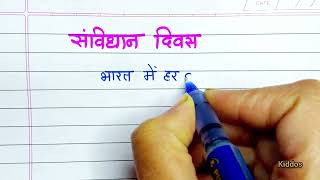 संविधान दिवस
भारत में हर
Kiddos